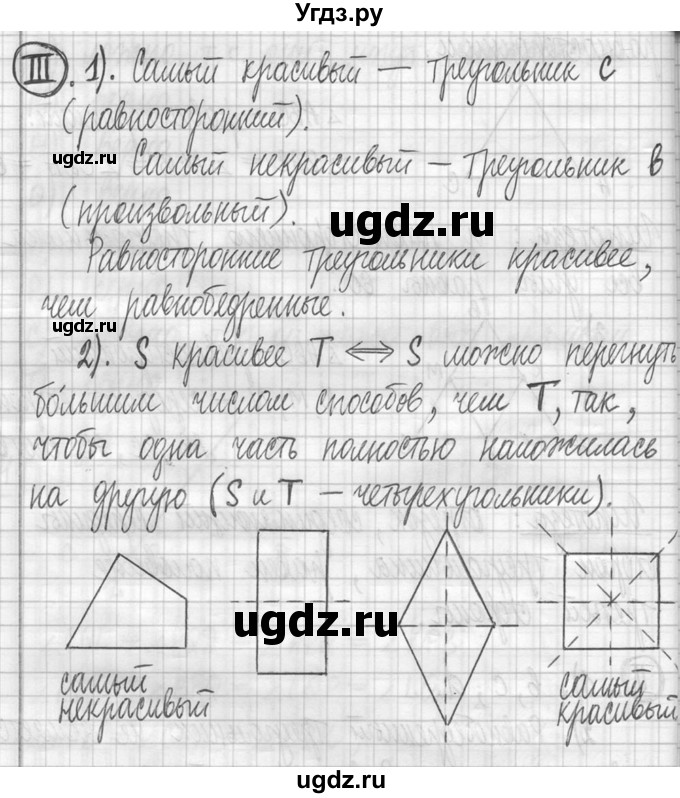 Угдз.ру
III. 1). Самый красивый — треугольник С
(равносторонний).
ugdz.ru
Самый некрасивый — треугольник В
(произвольный).
ugdz.ru
Равносторонние треугольники красивее,
чем равнобедренные.
ugdz.ru
2). S красивее T ⟺ S можно перегнуть
бóльшим числом способов, чем T, так,
чтобы одна часть полностью наложилась
на другую (S и T — четырехугольники).
ugdz.ru
самый
некрасивый
самый
красивый
ugdz.ru
ugdz.ru